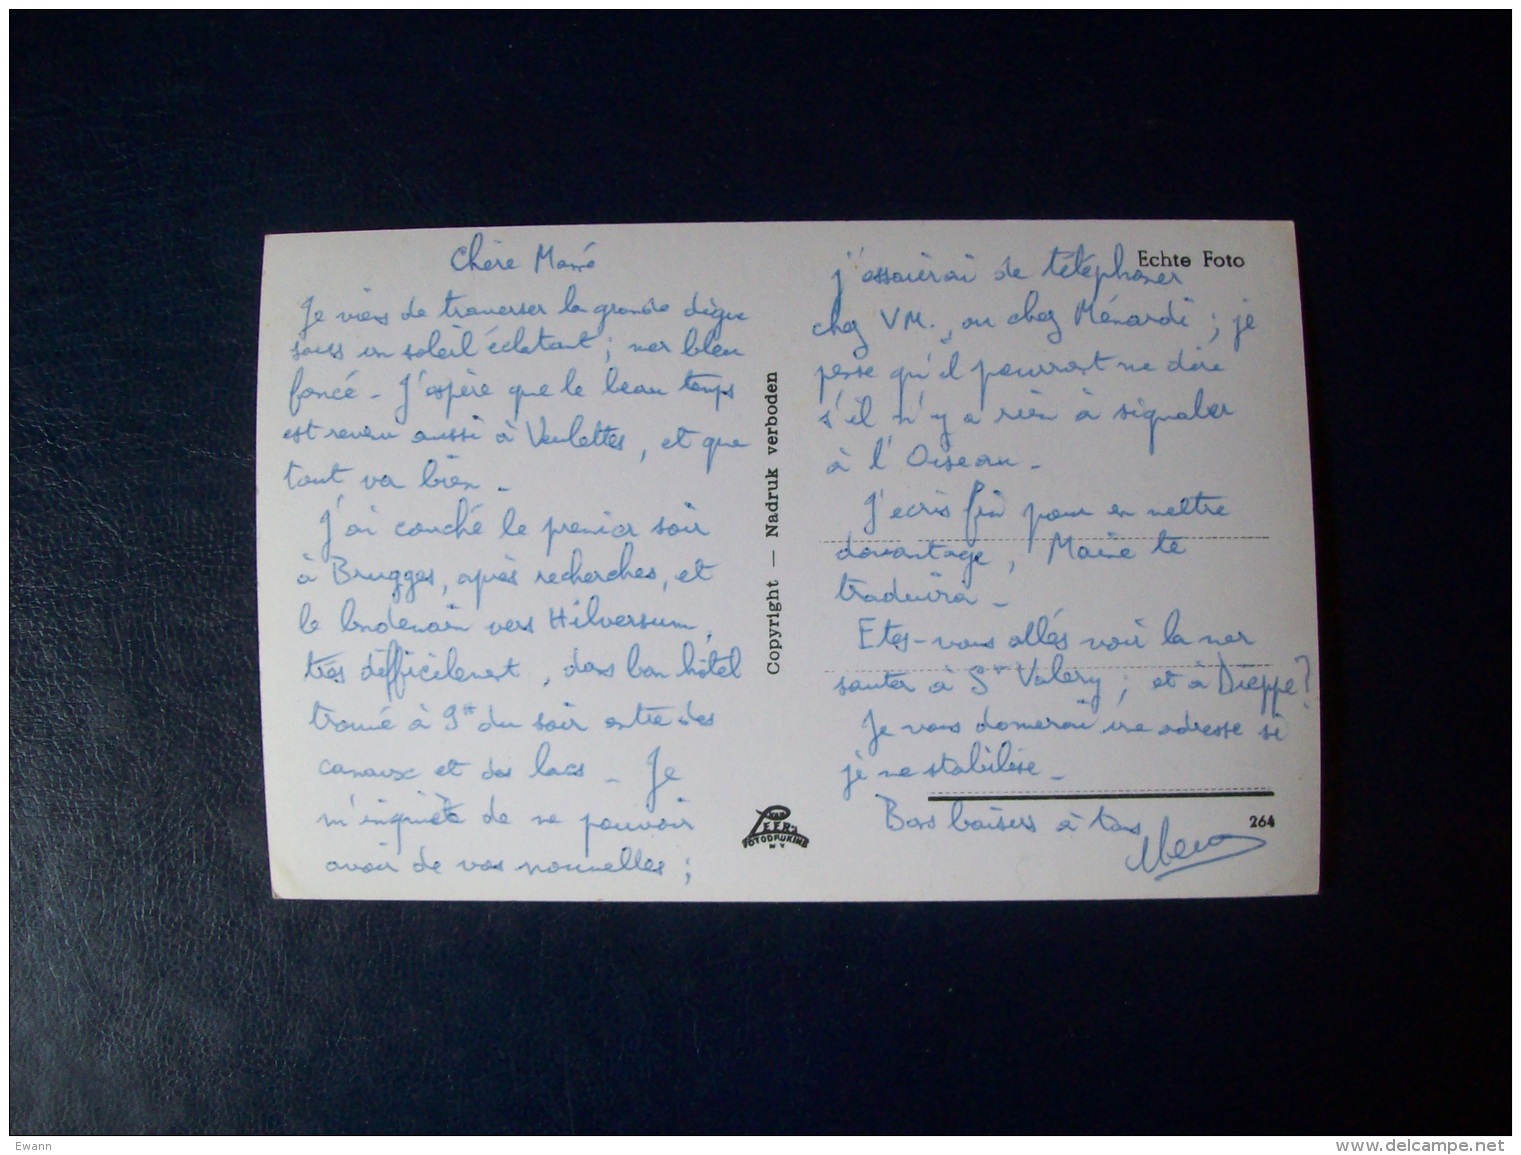 Chère Mamé
Je viens de traverser la grande digue
sous un soleil éclatant ; mer bleu
foncé - J'espère que le beau temps
est revenu aussi à Veulettes, et que
tout va bien -
J'ai couché le premier soir
à Brugges, après recherches, et
le lendemain vers Hilversum,
très difficilement, dans bon hôtel
trouvé à 9h du soir entre des
canaux et des lacs - Je
m'inquiète de ne pouvoir
avoir de vos nouvelles ;
Echte Foto
j'essaierai de téléphoner
chez VM., ou chez Ménardi ; je
pense qu'il pourront me dire
s'il n'y a rien à signaler
à l'Oiseau -
J'écris fin pour en mettre
davantage, te
traduira -
Etes-vous allés voir la mer
sauter à St Valery ; et à Dieppe ?
Je vous donnerai une adresse si
je me stabilise -
Bons baisers à tous
Copyright — Nadruk verboden
VAN LEER'S
FOTODRUKIND
N V
264
Ewann
www.delcampe.net